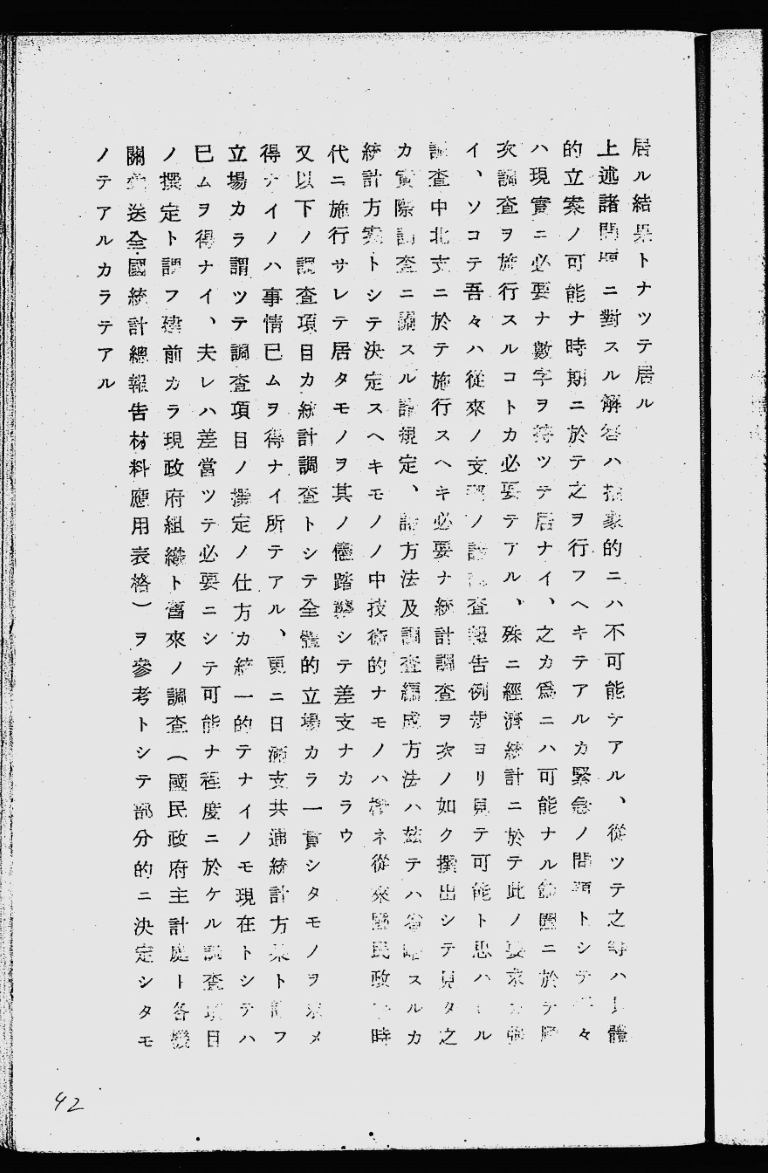 居ル結果トナツテ居ル
上述諸問題ニ對スル解答ハ抽象的ニハ不可能テアル、從ツテ之等ハ具體
的立案ノ可能ナ時期ニ於テ之ヲ行フヘキテアルカ緊急ノ問題トシテ 々
ハ現實ニ必要ナ數字ヲ持ツテ居ナイ、之カ爲ニハ可能ナル範圍ニ於テ
次調査ヲ施行スルコトカ必要テアル、殊ニ經濟統計ニ於テ此ノ要求カ強
イ、ソコテ吾々ハ從來ノ支那ノ諸調査報告例 ヨリ見テ可能ト思ハルル
調査中北支ニ於テ施行スヘキ必要ナ統計調査ヲ次ノ如ク撰出シテ見タ之
カ實際調査ニ關スル諸規定、諸方法及調査編成方法ハ茲テハ省略スルカ
統計方案トシテ決定スヘキモノノ中技術的ナモノハ概ネ從來國民政府時
代ニ施行サレテ居タモノヲ其ノ儘踏襲シテ差支ナカラウ
又以下ノ調査項目カ統計調査トシテ全體的立場カラ一貫シタモノヲ求メ
得ナイノハ事情已ムヲ得ナイ所テアル、更ニ日滿支共通統計方策ト謂フ
立場カラ謂ツテ調査項目ノ撰定ノ仕方カ統一的テナイノモ現在トシテハ
已ムヲ得ナイ、夫レハ差當ツテ必要ニシテ可能ナ程度ニ於ケル調査項目
ノ撰定ト謂フ建前カラ現政府組織ト舊來ノ調査（國民政府主計處ト各機
關彙送全國統計總報告材料應用表格）ヲ參考トシテ部分的ニ決定シタモ
ノテアルカラテアル
42